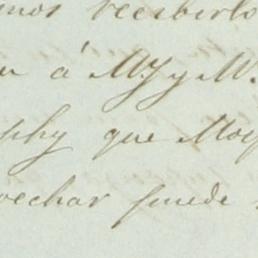 mos recibirlo
á M. y M.
phy que May
vechar puede